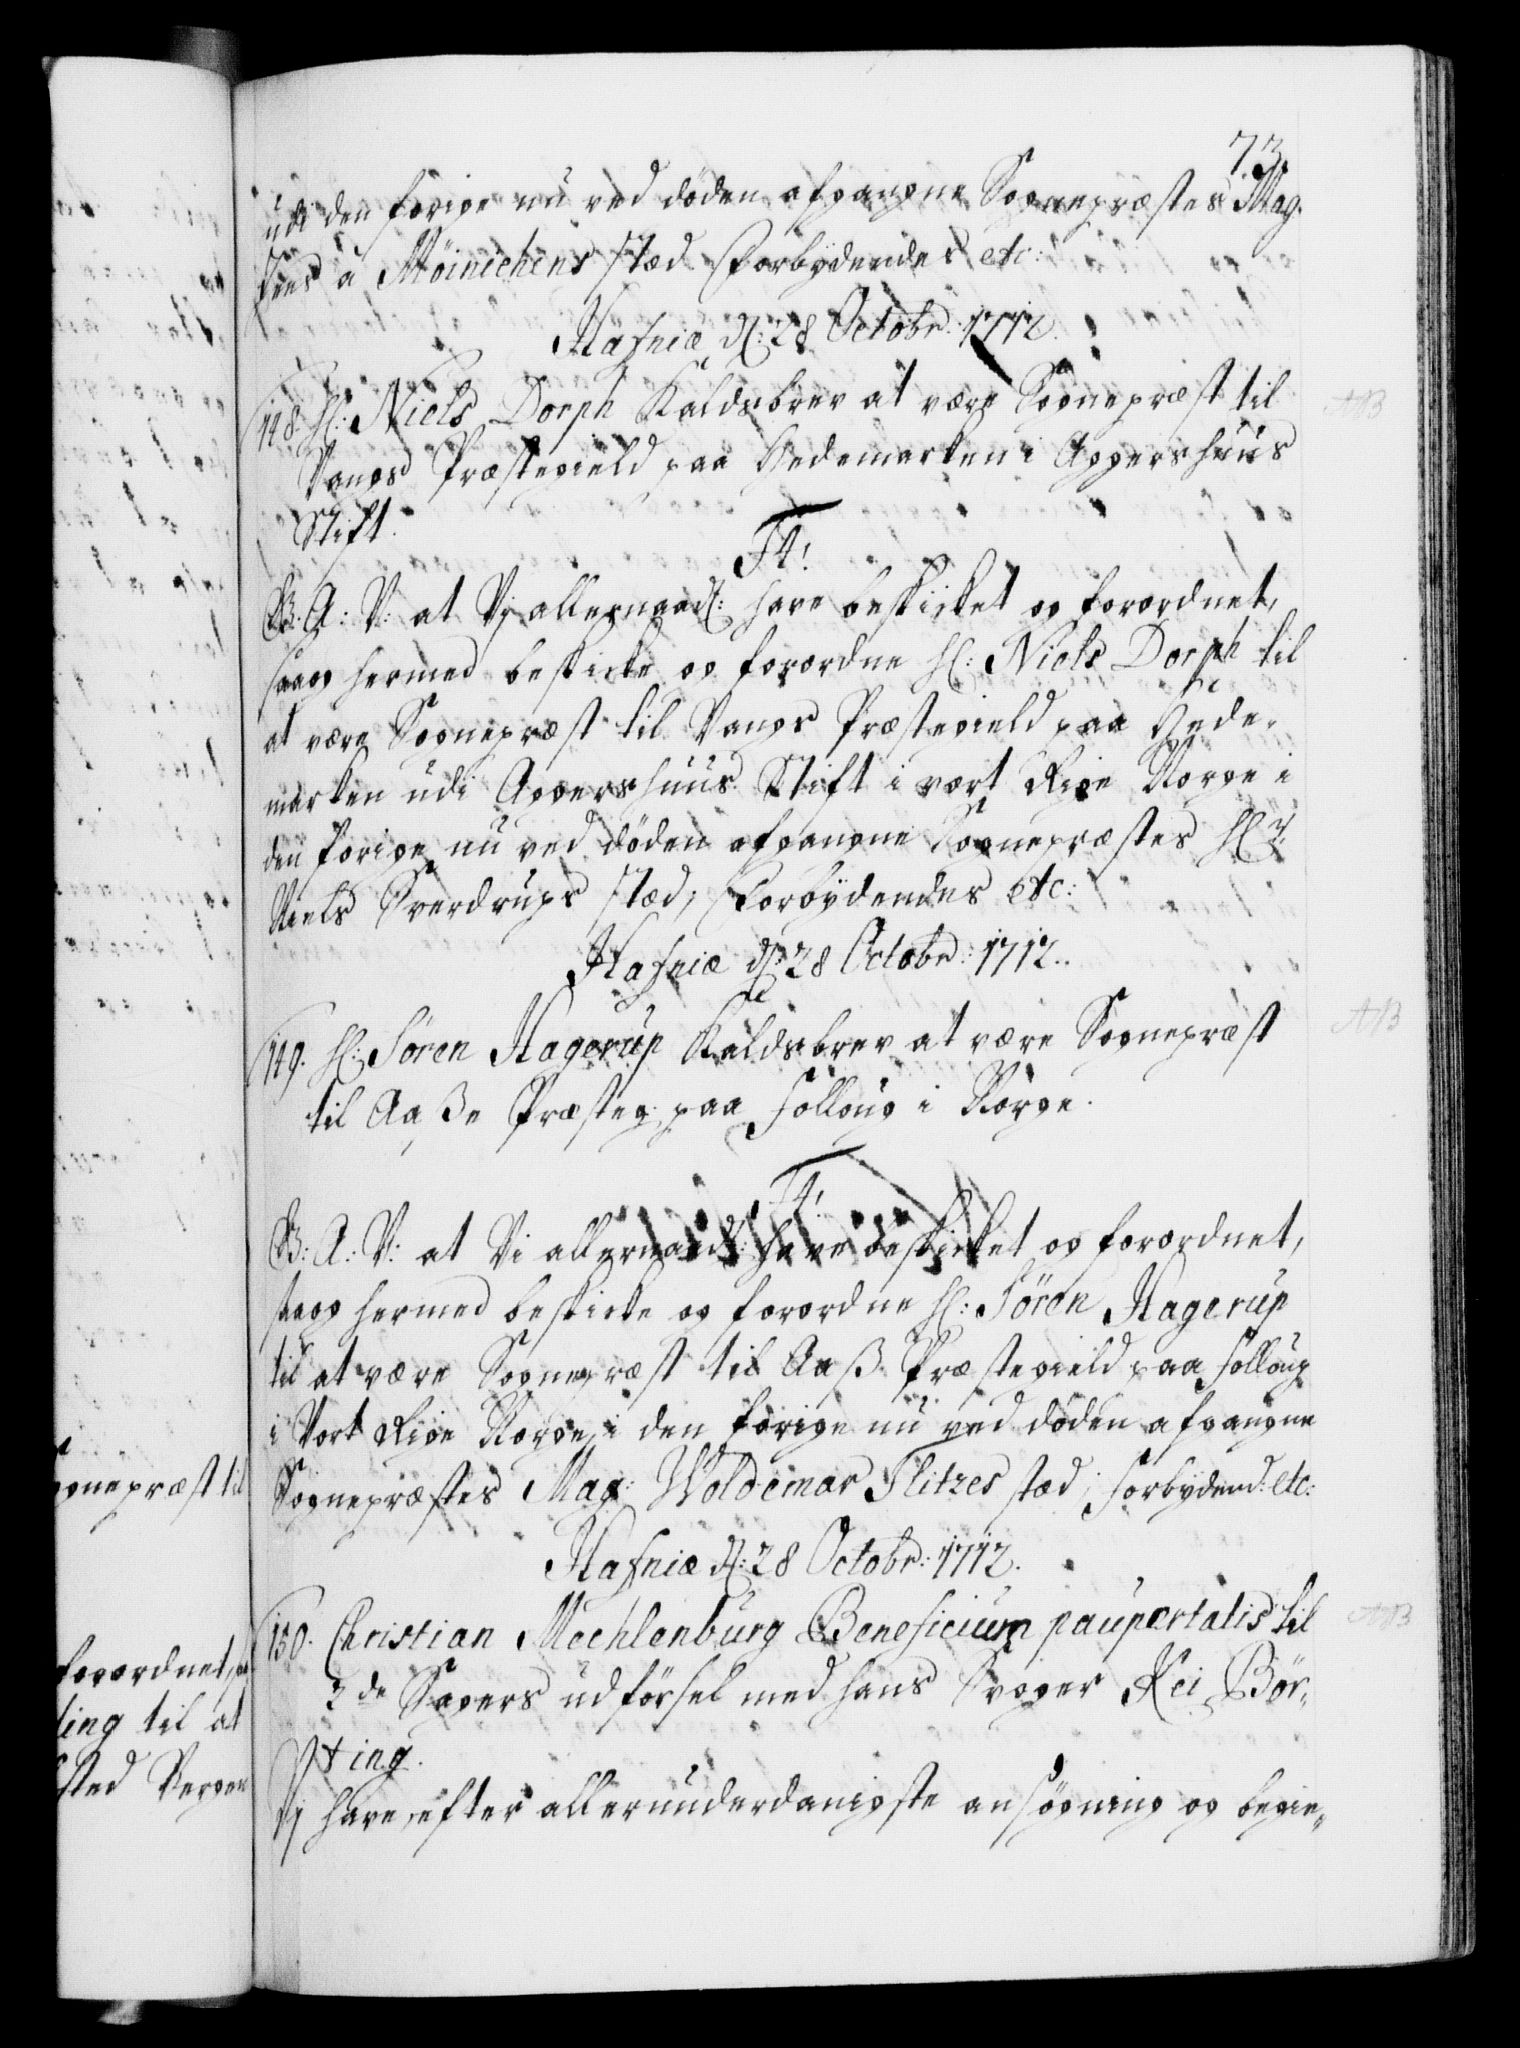 73.
udi den forige nu ved döden afgangne Sognepræstes Mag.
Jens à Möinichens stæd Forbydendes etc:
Hafniæ d: 28 Octobr: 1712.
148. Hr: Niels Dorph Kaldsbrev at være Sognepræst til
Vangs Præstegield paa Hedemarken i Aggershuus
Stift.
F4!
G: A: V: at Vi allernaad: have beskicket og forordnet,
saa og hermed beskicke og forordne Hr: Niels Dorph til
at være Sognepræst til Vangs Præstegield paa Hede-
marken udi Aggershuus Stift i vort Rige Norge i
den forige nu ved döden afgangne Sognepræstes Hr:
Niels Sverdrups stæd, Forbydendes etc:
Hafniæ d: 28 Octobr: 1712.
149. Hr: Sören Hagerup Kaldsbrev at være Sognepræst
til Aaße Præsteg: paa Folloug i Norge.
F4!
G: A: V: at Vi allernaad: have beskicket og forordnet,
saa og hermed beskicke og forordne Hr: Sören Hagerup
til at være Sognepræst til Aaß Præstegield paa Folloug
i Vort Rige Norge, i den forige nu ved döden afgangne
Sognepræstes Mag: Woldemar Flitzes stæd; Forbydend: etc:
Hafniæ d: 28 Octobr: 1712.
150. Christian Mechlenburg Beneficium paupertatis til
3de Sagers udförsel med hans Svoger Kei Bör-
ting.
Vi have, efter allerunderdanigste ansögning og begie-
ognepræst til
forordnet, saa
ling til at
sted Bergen
AB
AB
AB